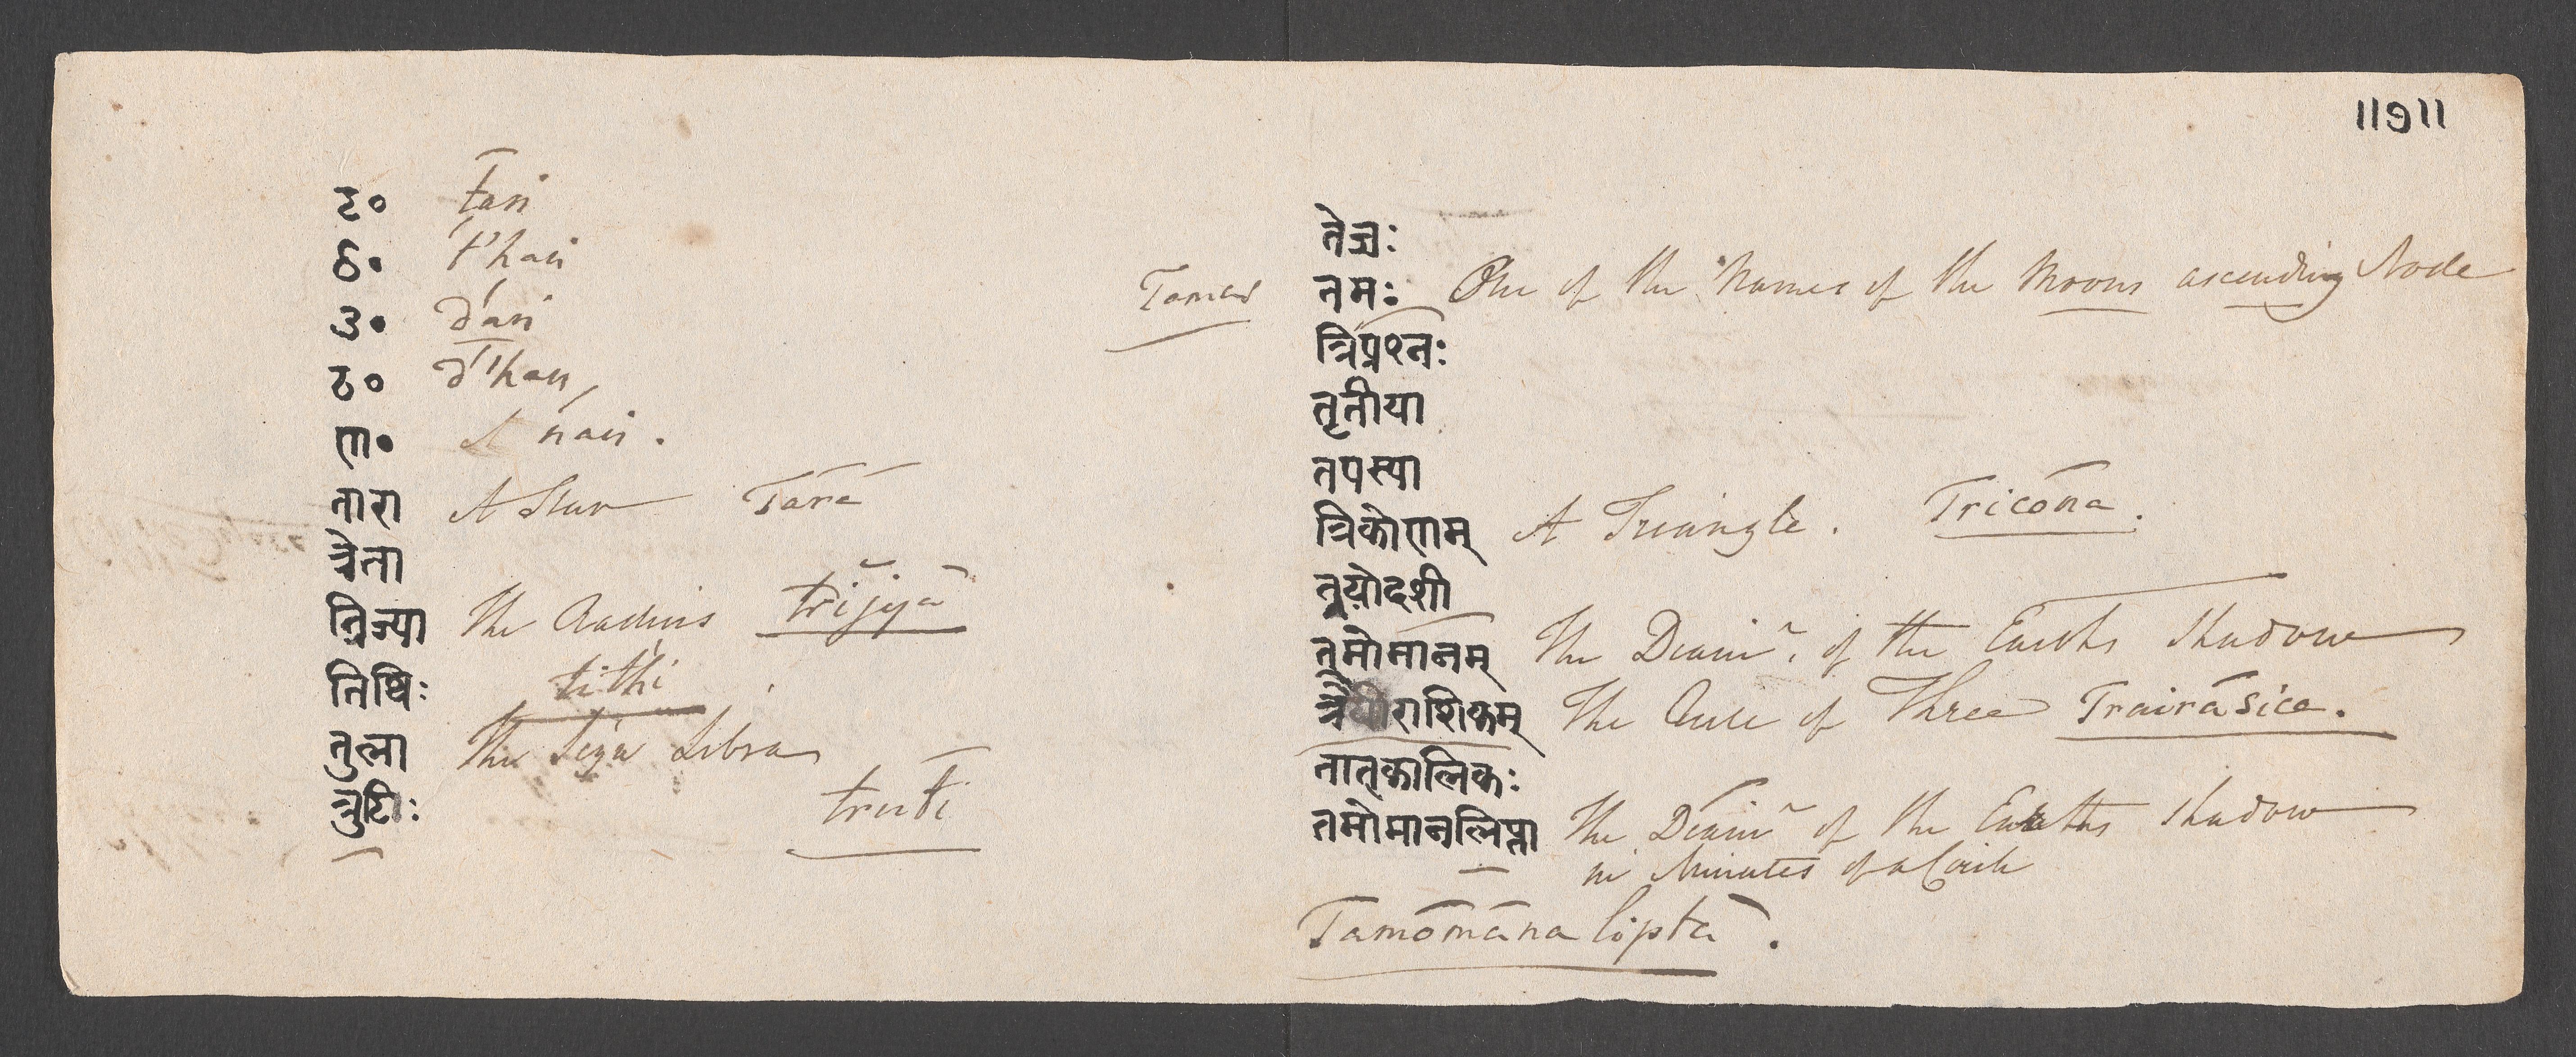 ॥७॥
ट० tan
ठ० t'han
ड० d'an
ढ० d'han
ण० nan.
तारा A Star Tara
त्रेता
त्रिज्या The Radius trijyā
तिथिः tithi
तुला The Sign Libra
त्रुटिः truti
तेजः
Tamas तमः One of the Names of the Moons ascending Node
त्रिप्रश्नः
तृतीया
तपस्या
त्रिकोणम् A Triangle. Tricōna.
त्रयोदशी
तमोमानम् The Diamr. of the Earths Shadow
त्रैराशिकम् The Rule of Three Trairāsica.
तात्कालिकः
तमोमानलिप्ता The Diamr of the Earths Shadow
in Minutes of a Circle
Tamōmāna liptā.